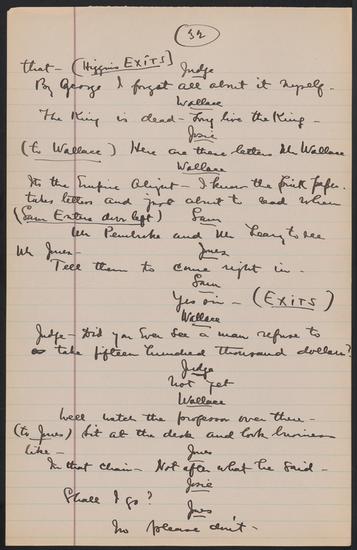 32
that - (Higgins EXITS]
Judge
By George I forgot all about it myself -
Wallace
The King is dead - long live the King -
Josie
(to Wallace) Here are those letters Mr Wallace
Wallace
Its the Empire Alright - I know the pink paper.
takes letters and just about to read when
(Sam Enters door left) Sam
Mr Pembroke and Mr Leary to see
Mr Jones -
Jones
Tell them to come right in -
Sam
Yes sir - (EXITS)
Wallace
Judge - Did you Ever see a man refuse to
take fifteen hundred thousand dollars?
Judge
Not yet
Wallace
Well watch the professor over there -
(to Jones) Sit at the desk and look business
like -
Jones
In that chair - Not after what he said -
Josie
Shall I go?
Jones
No please don't -